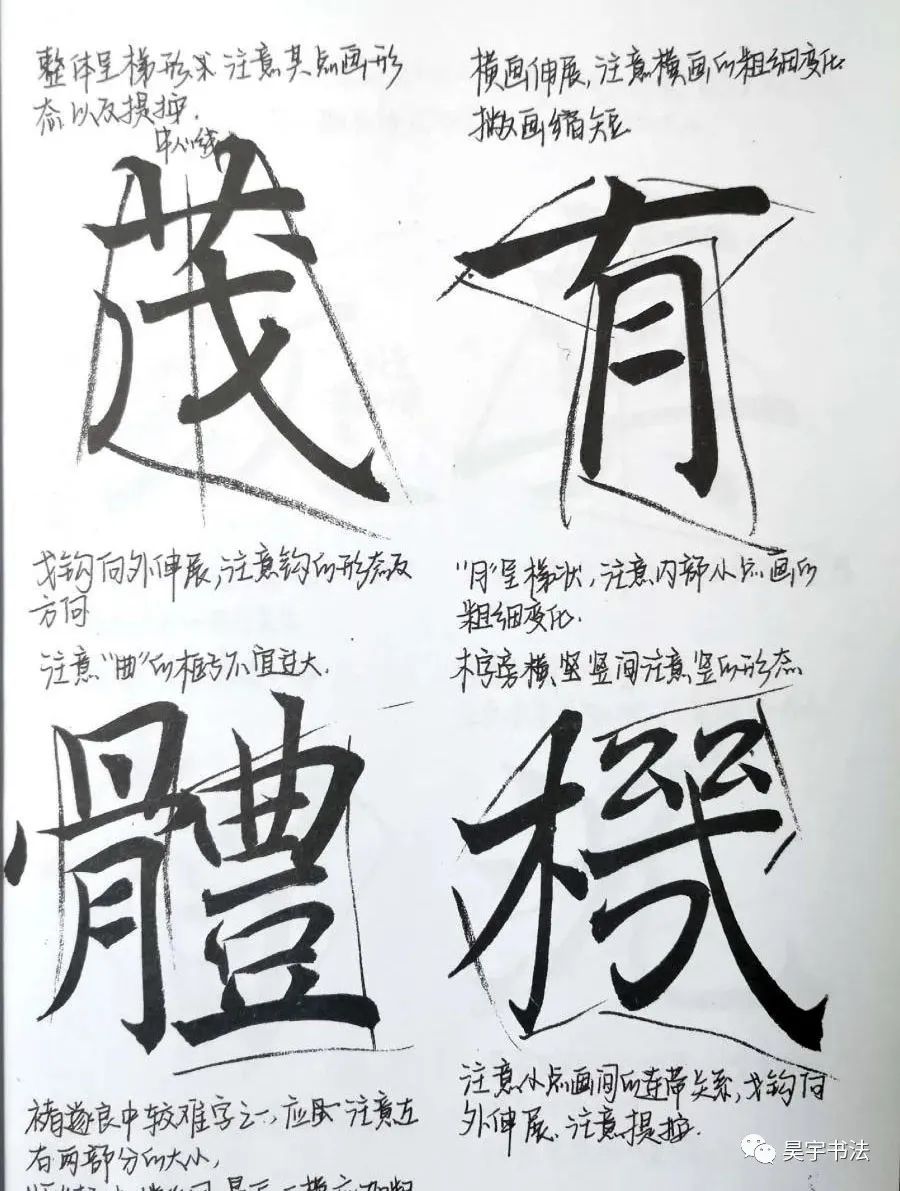 整体呈梯形状注意其点画形
态以及提按.
中心线
茂
戈钩向外伸展,注意钩的形态及
方向
横画伸展,注意横画的粗细变化
撇画缩短
有
"月"呈梯状,注意内部小点画的
粗细变化.
注意"曲"的框与不宜过大.
體
褚遂良中较难字之一,应 注意左
右两部分的大小,
木字旁横竖竖间注意竖的形态
機
注意小点画间的连带关系,戈钩向
外伸展.注意提按.
昊宇书法